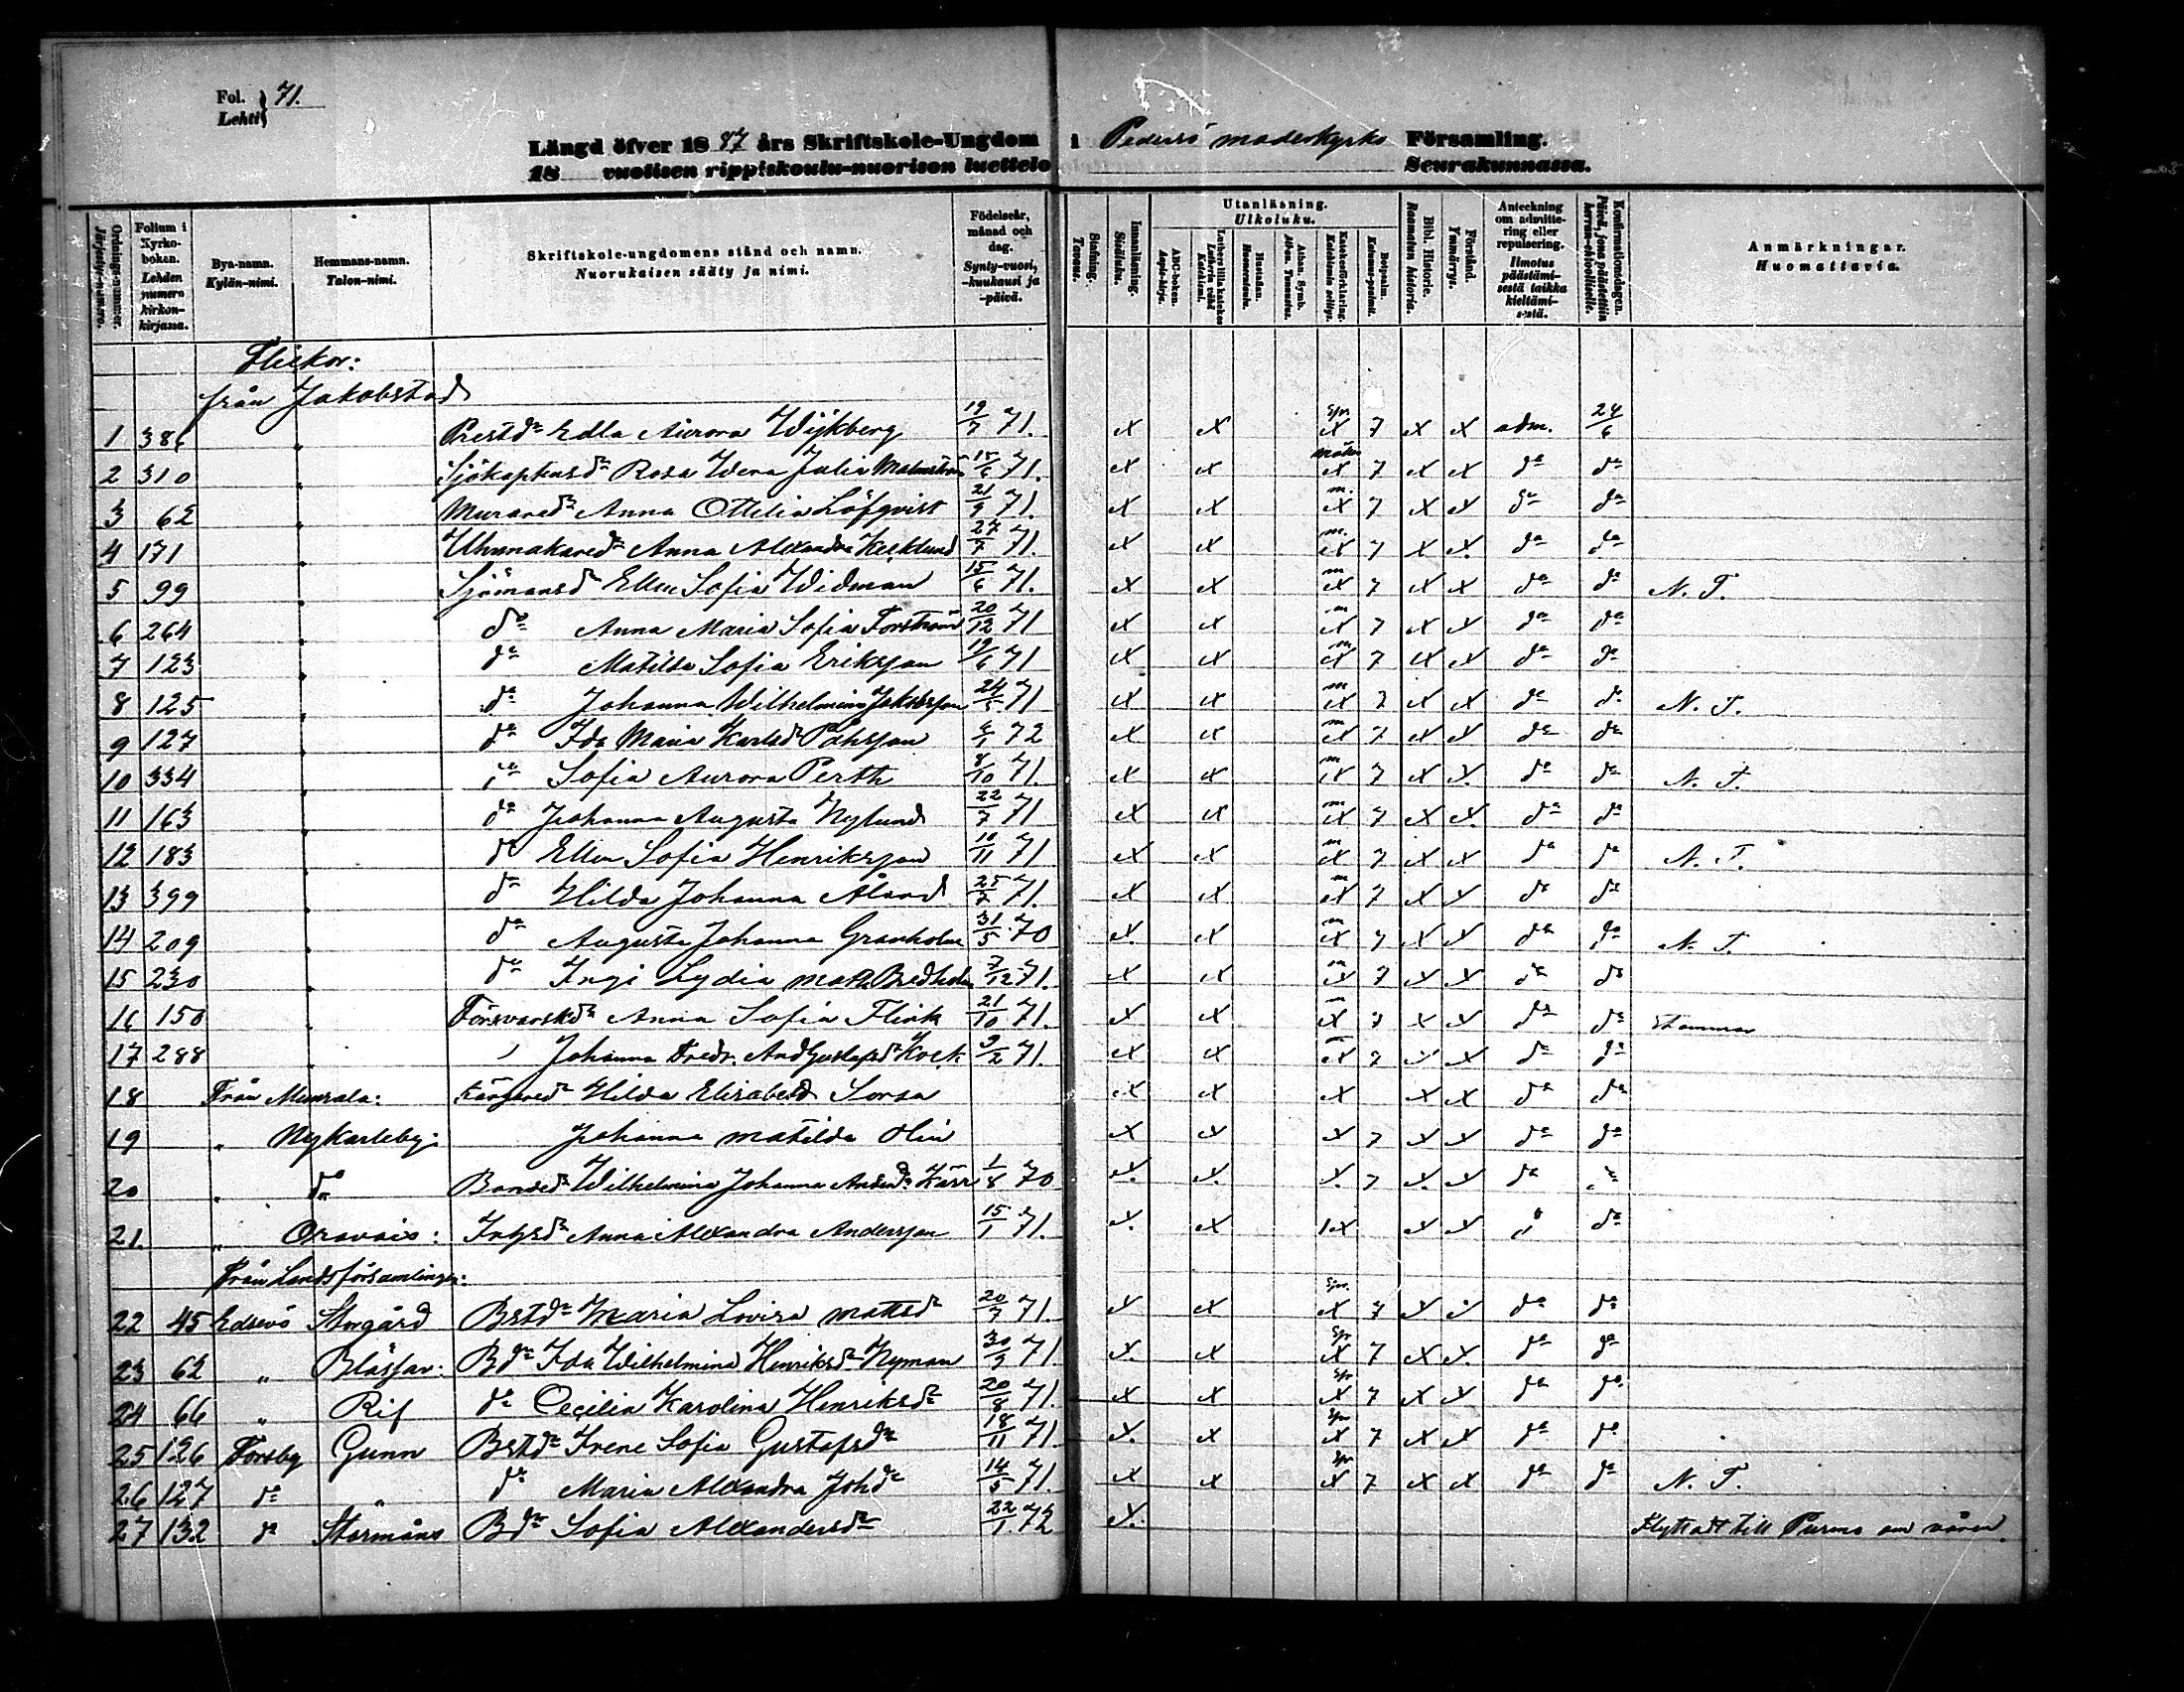 Fol. 71.
Lehti
Längd öfver 1887 års Skriftskole-Ungdom i Pedersö moderkyrko Församling.
18 vuotisen rippiskoulu-nuorison luettelo Seurakunnassa.
Ordnings-nummer. Järjestys-numero.
Folium i Kyrko-boken. Lehden numero kirkon-kirjassa.
Bya-namn. Kylän-nimi.
Hemmans-namn. Talon-nimi.
Skriftskole-ungdomens stånd och namn. Nuorukaisen sääty ja nimi.
Födelseår, månad och dag. Synty-vuosi, -kuukausi ja -päivä.
Stafning. Tavuus.
Innanläsning. Sisäluku.
Utanläsning. Ulkoluku.
ABC-boken. Aapis-kirja.
Luthers lilla katekes Lutherin vähä Katekismi.
Hustaflan. Huoneentaulu.
Athan. Symb. Athan. Tunnustus.
Katekesförklaring. Katekismin selitys.
Botpsalm. Katumus-psalmit.
Bibl. Historie. Raamatun historia.
Förstånd. Ymmärrys.
Anteckning om admitte-ring eller repulsering. Ilmotus päästämi-sestä taikka kieltämi-sestä.
Konfirmationsdagen. Päivä, jona päästettiin herran-ehtoolliselle.
Anmärkningar. Huomattavia.
Flickor:
från Jakobstad
1 386 " Prestdr Edla Aurora Wijkberg 19/7 71. x x spr x 7 x x adm. 24/6
2 310 " Sjökaptensdr Rosa Wera Julia Malmström 15/6 71. x x x 7 x x do do
3 62 " Muraredr Anna Ottilia Löfqvist 21/9 71. x x m. x 7 x x do do
4 171 " Uhrmakaredr Anna Alexandra Kecklund 27/7 71. x x m. x 7 x x. do do
5 99 " Sjömansdr Ellen Sofia Widman 15/6 71. x x m x 7 x x do do N. T.
6 264 " do Anna Maria Sofia Forström 20/12 71 x x m x 7 x x do do
7 123 " do Matilda Sofia Eriksson 19/6 71 x x m x 7 x x do do
8 125 " do Johanna Wilhelmina Jakobsson 24/5 71 x x m x 7 x x do do N. T.
9 127 " do Ida Maria Karlsdr Påhsson 6/1 72 x x m x 7 x x do do
10 334 " do Sofia Aurora Perth 8/10 71. x x m x 7 x x. do do N. T.
11 163 " do Johanna Augusta Nylund 22/7 71 x x m x 7 x x. do do
12 183 " do Ellen Sofia Henriksson 10/11 71 x x m x 7 x x do do N. T.
13 399 " do Hilda Johanna Ålund 25/7 71. x x m x 7 x x do do
14 209 do Augusta Johanna Granholm 31/5 70 x. x m x 7 x x do do N. T.
15 230 " do Inga Lydia Bredholm 7/12 71. x x m x 7 x x do do
16 150 Försvarskdr Anna Sofia Flink 21/10 71. x x m x 7 x x do do
17 288 Johanna Fredr. And Gustafsdr Kock 9/2 71. x x x 7 x x do do
18 Från Munsala: Hilda Elisabeth Sorsa x x x x x do do
19 " Nykarleby: Johanna Matilda Olin x x x 7 x x do do
20 " do Bondedr Wilhelmina Johanna Andersdr Kärr 1/8 70 x. x. x. 7 x. x do do
21. " Oravais: Inhysdr Anna Alexandra Andersson 15/1 71. x. x x x x do do
Från Landsförsamlingen:
22 45 Edsevö Storgård Bstdr Maria Lovisa Mattsdr 20/7 71. x x spr. x 7 x x do do
23 62 " Blåsfar: Bdr Ida Wilhelmina Henriksdr Nyman 30/9 71 x. x spr x 7 x x. do do
24 66 " Rif do Cecilia Karolina Henriksdr 20/8 71. x x spr x 7 x x do do
25 126 Forsby Gunn Bstdr Irene Sofia Gustafsdr 18/11 71 x. x spr x 7 x x do do
26 127 do " do Maria Alexandra Johdr 14/5 71. x x spr x 7 x x do do N. T.
27 132 do Stormåns Bdr Sofia Alexandersdr 22/1. 72 x. Flyttadt till Purmo om våren.